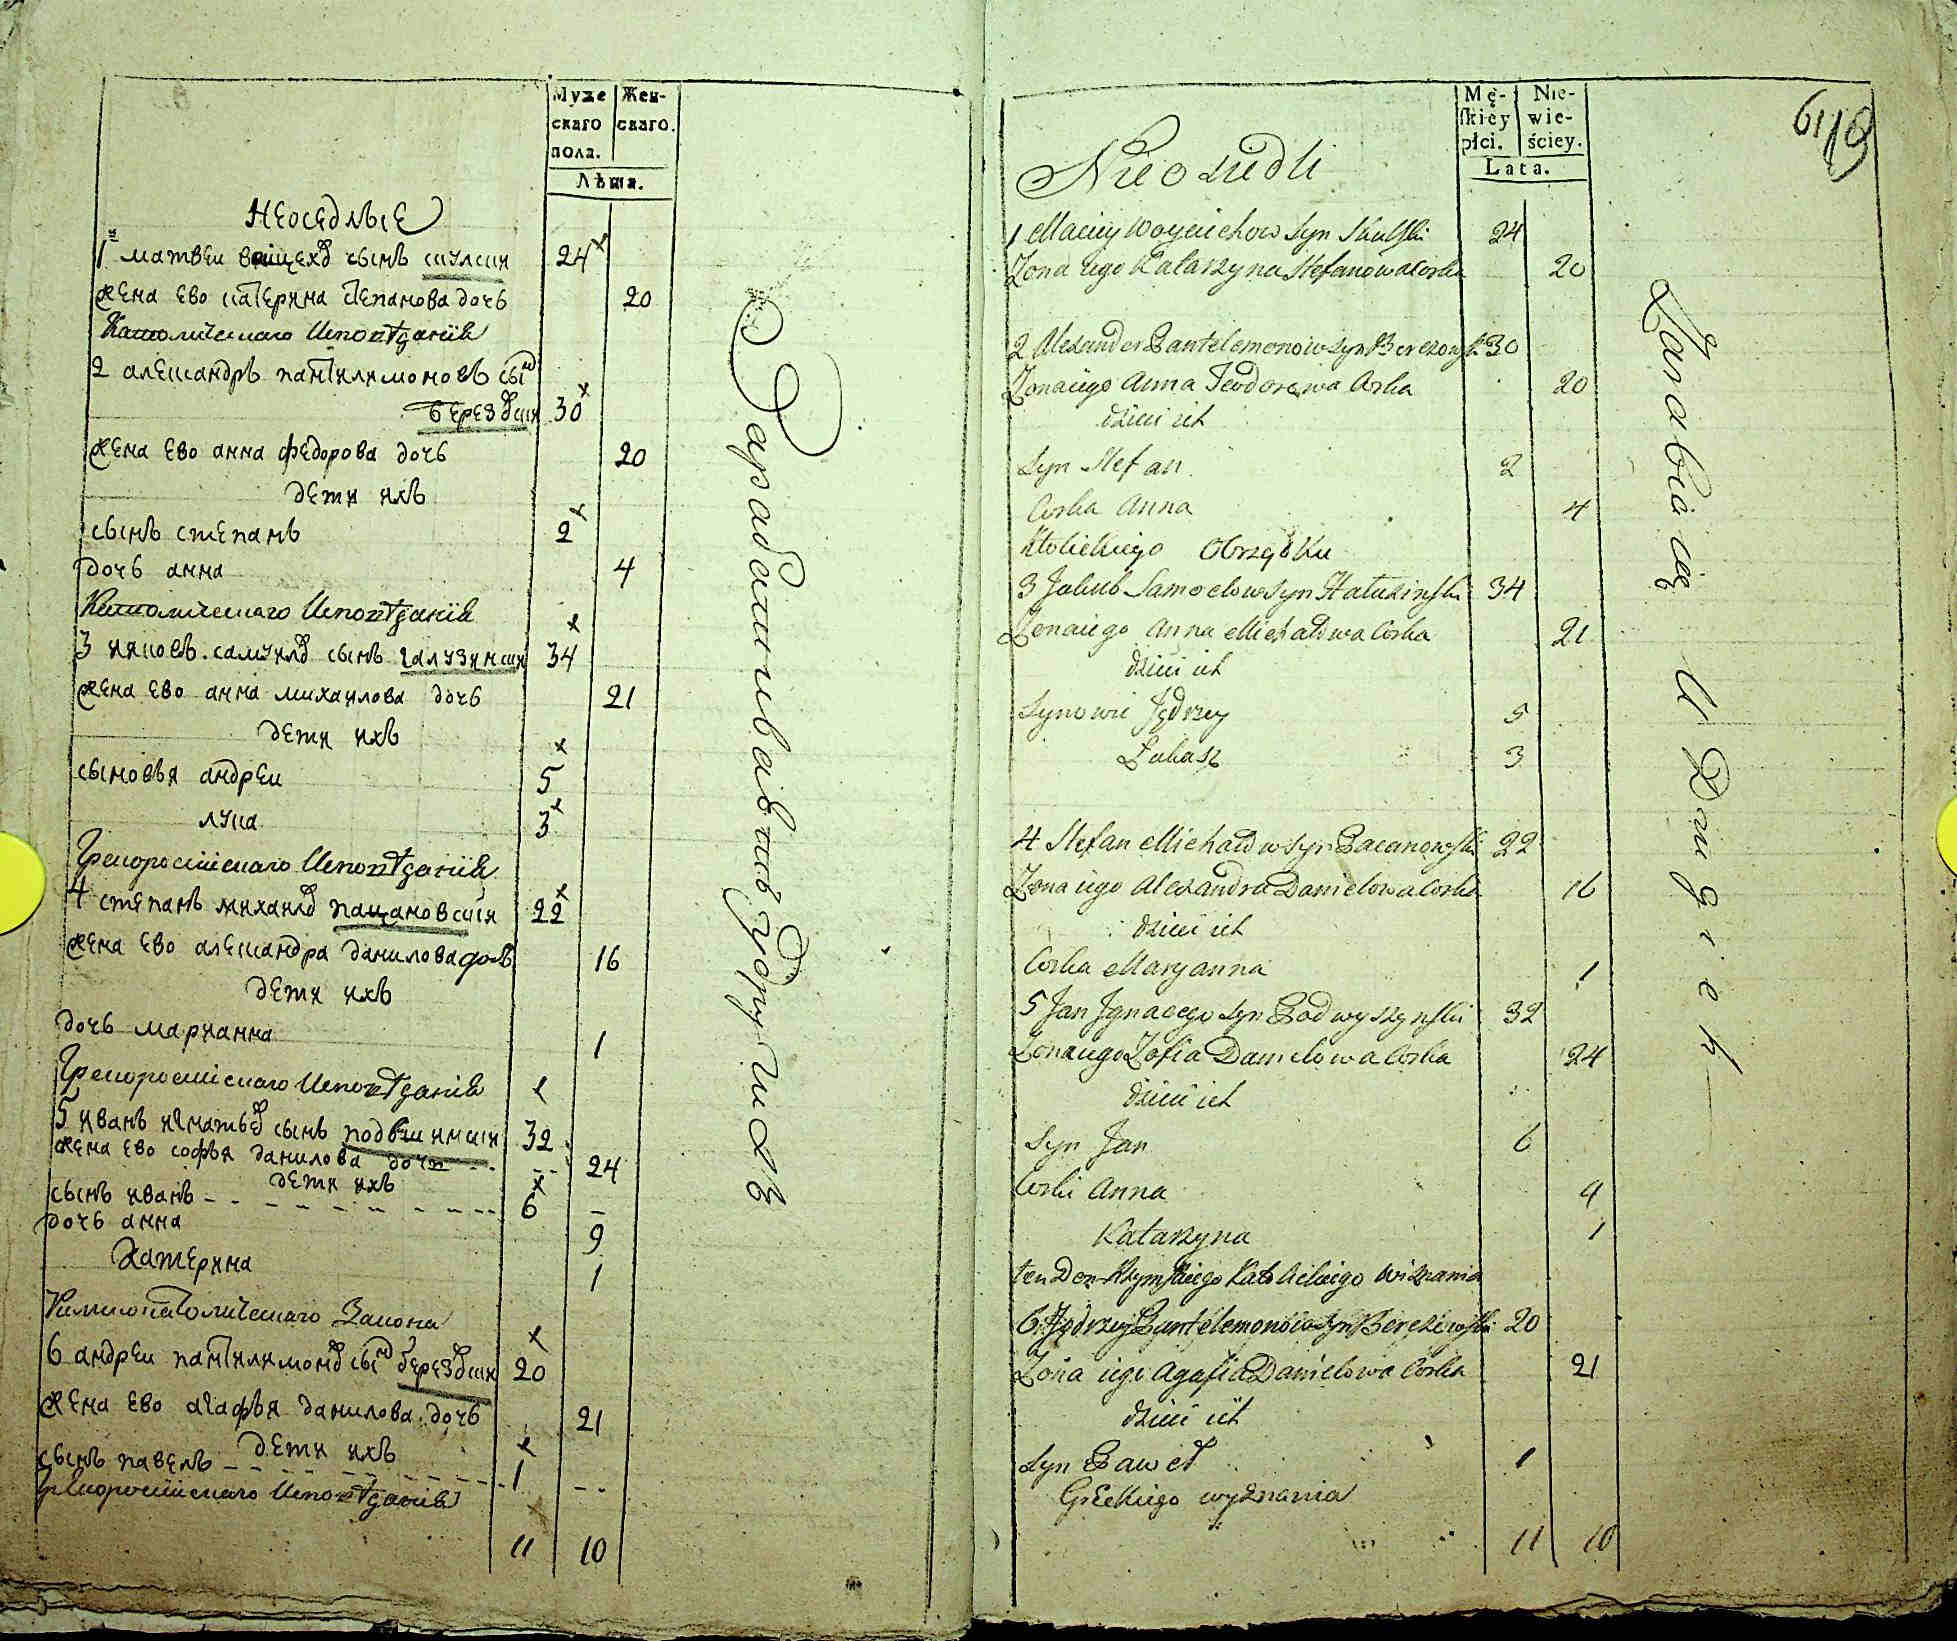 Муже
скаго
пола.
Жен-
скаго.
Лѣта.
неосѣдлыѣ
1й матвеи воицехд сынъ скулски 24
жена ево катерина степанова дочь 20
Католическаго Исповѣданія
2 александръ пантилимоновъ сынъ
березовски 30
жена ево анна федорова дочь 20
дети ихъ
сынъ степанъ 2
дочь анна 4
Католическаго Исповѣданія
3 яковъ самуилд сынъ галузински 34
жена ево анна михаилова дочь 21
дети ихъ
сыновья андреи 5
лука 3
Грекоросійскаго Исповѣданія
4 степанъ михаилд пацановски 22
жена ево александра данилова дочь 16
дети ихъ
дочь марианна 1
Грекоросійскаго Исповѣданія
5 иванъ игнатьев сынъ подвышински 32
жена ево софья данилова дочь 24
дети ихъ
сынъ иванъ 6
дочь анна 9
Катерина 1
Римскокатолическаго Закона
6 андреи пантилимонд сынъ березовски 20
жена ево агафья данилова дочь 21
дети ихъ
сынъ павелъ 1
Грекоросійскаго Исповѣданія
11 10
Зарабатываютъ у другихъ
Mę-
skiey
płci.
Nie-
wie-
ściey.
Lata.
61
Nieosiedli
1 Maciey Woyciechow Syn Skulski 24
Zona iego Katarzyna Stefanowa Corka 20
2 Alexander Pantelemonow syn Berezowski 30
Zona iego Anna Teodorowa Corka 20
dzieci ich
Syn Stefan 2
Corka Anna 4
Ktolickiego Obrządku
3 Jakub Samoelow Syn Haluzinski 34
Zona iego Anna Michałowa Corka 21
dzieci ich
Synowie Jędrzey 5
Łukasz 3
4 Stefan Michałow syn Pacanowski 22
Zona iego Alexandra Danielowa Corka 16
dzieci ich
Corka Maryanna 1
5 Jan Jgnacego syn Podwyszynski 32
Zona iego Zofia Danielowa Corka 24
dzieci ich
Syn Jan 6
Corki Anna 9
Katarzyna 1
ten Dom Rzymskiego Katolickiego wiznania
6 Jędrzey Pantelemonow syn Berezowski 20
Zona iego Agafia Danielowa Corka 21
dzieci ich
Syn Paweł 1
Greckiego wyznania
11 10
Zarabia się u Drugich